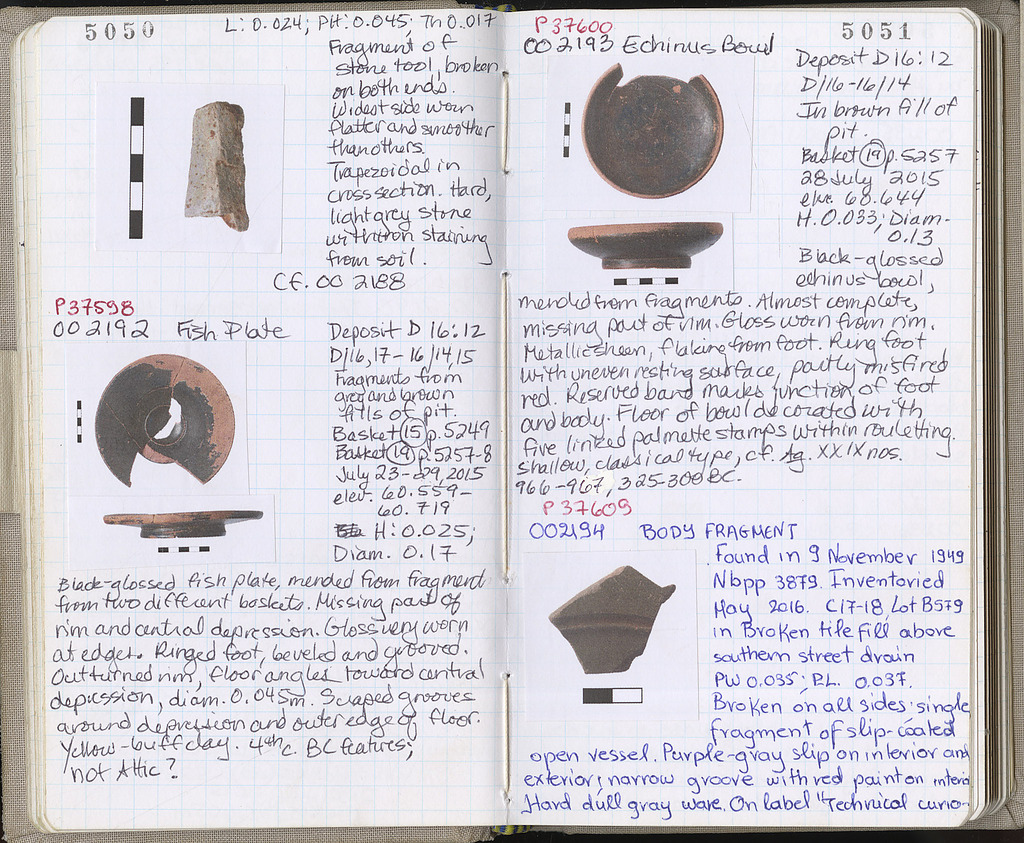 5050
L: 0.024; PH: 0.045; Th 0.017
Fragment of
stone tool, broken
on both ends.
Widest side worn
flatter and smoother
than others.
Trapezoidal in
cross section. Hard,
light grey stone
with iron staining
from soil.
Cf. 00 2188
P 37598
00 2192 Fish Plate
Deposit D 16:12
D/16,17-16/14,15
Fragments from
grey and brown
fills of pit.
Basket 15 p. 5249
Basket 19 p. 5257-8
July 23-29, 2015
elev. 60.559-
60.719
H: 0.025;
Diam. 0.17
Black-glossed fish plate, mended from fragment
from two different baskets. Missing part of
rim and central depression. Gloss very worn
at edges. Ringed foot, beveled and grooved.
Outturned rim, floor angles toward central
depression, diam. 0.045m. Scraped grooves
around depression and outer edge of floor.
Yellow-buff clay. 4th c. BC features;
not Attic?
5051
P 37600
00 2193 Echinus Bowl
Deposit D 16:12
D/16-16/14
In brown fill of
pit.
Basket 19 p. 5257
28 July 2015
elev. 60.644
H. 0.033; Diam-
0.13
Black-glossed
echinus bowl,
mended from fragments. Almost complete,
missing part of rim. Gloss worn from rim.
Metallic sheen, flaking from foot. Ring foot
with uneven resting surface, partly misfired
red. Reserved band marks junction of foot
and body. Floor of bowl decorated with
five linked palmette stamps within rouletting.
Shallow, classical type, cf. Ag. XXIX nos.
966-967, 325-300 BC.
P 37609
002194 BODY FRAGMENT
Found in 9 November 1949
Nbpp 3879. Inventoried
May 2016. C17-18, Lot B579
in Broken tile fill above
southern street drain
PW 0.035; P.L. 0.037.
Broken on all sides: single
fragment of slip-coated
open vessel. Purple-gray slip on interior and
exterior; narrow groove with red paint on interi
Hard dull gray ware. On label "Technical curio-